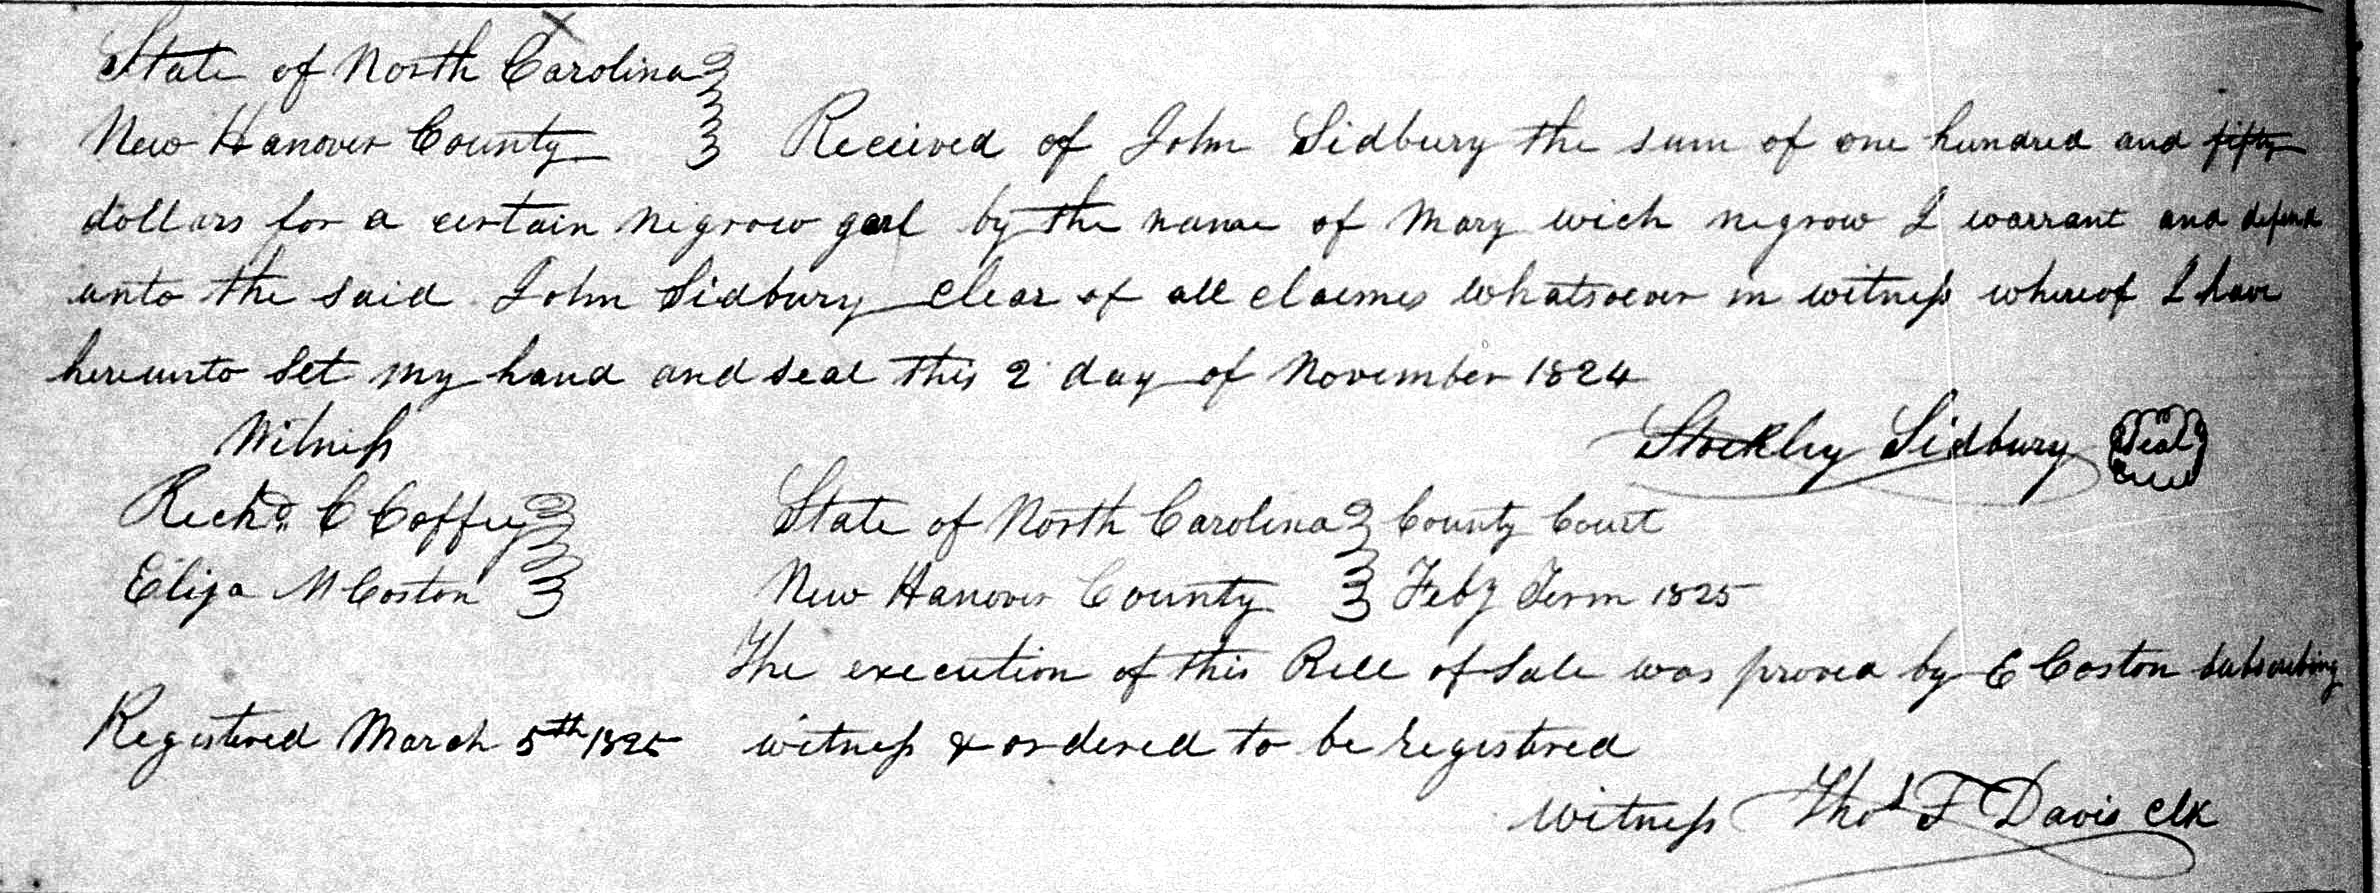 State of North Carolina
New Hanover County Received of John Sidbury the sum of one hundred and fifty
dollars for a certain nigrow garl by the name of Mary wich negrow I warrant and defend
unto the said John Sidbury clear of all claimes whatsoever in witness whereof I have
hereunto set my hand and seal this 2 day of November 1824
Witness Stockley Sidbury Seal
Richd. C Coffey State of North Carolina County Court
Eliza M Coston New Hanover County Feby Term 1825
The execution of this Bill of Sale was proved by E Coston subscribing
Registered March 5th 1825 witness & ordered to be registered
Witness Thos F Davis Clk